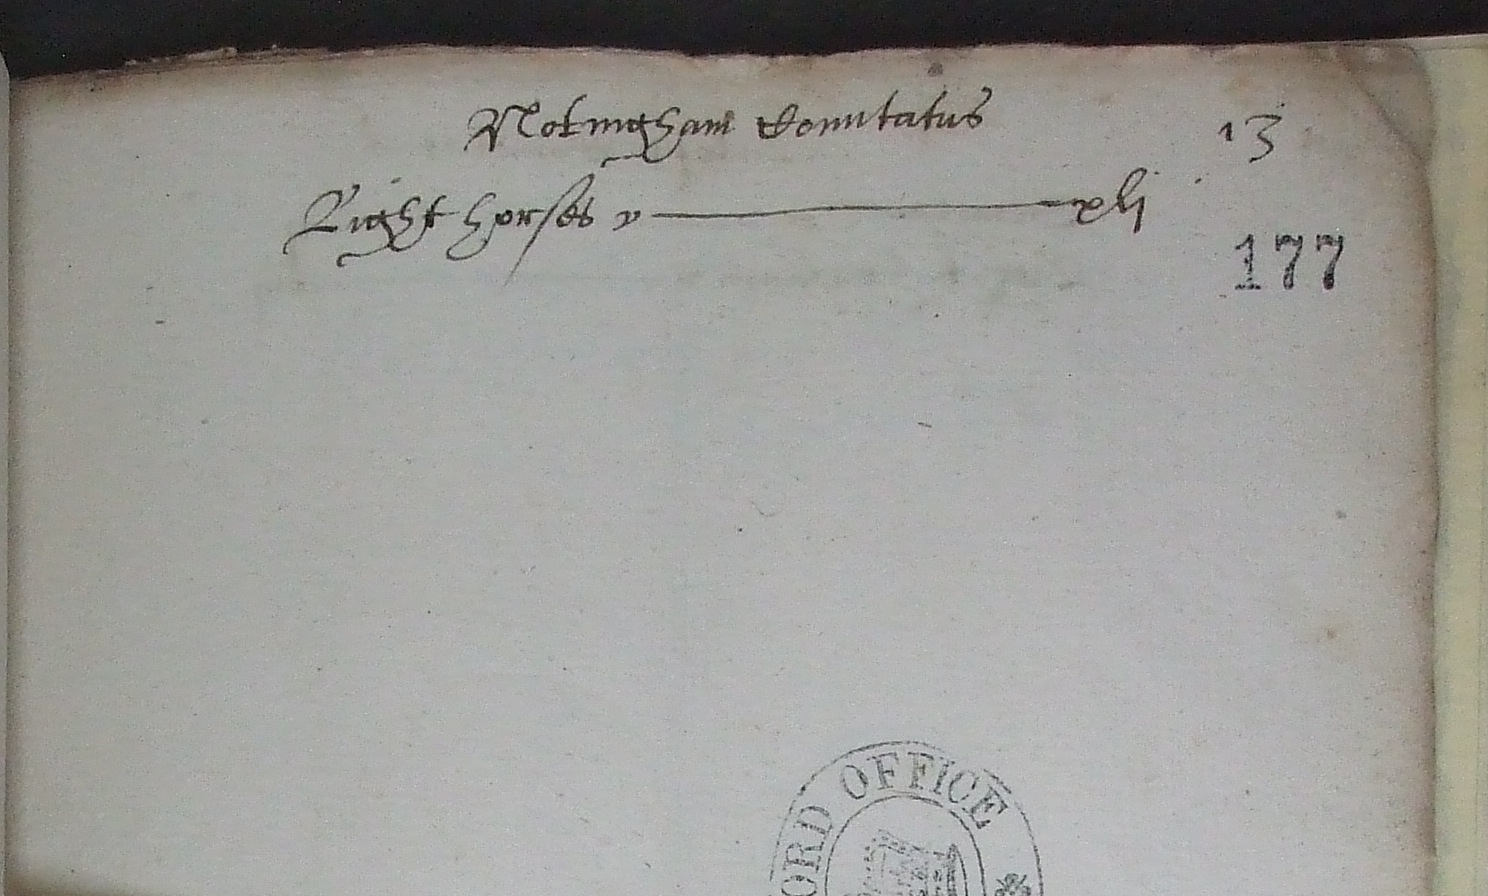 Notingham Comitatus 13
Light horses v xlj
177
ORD OFFICE